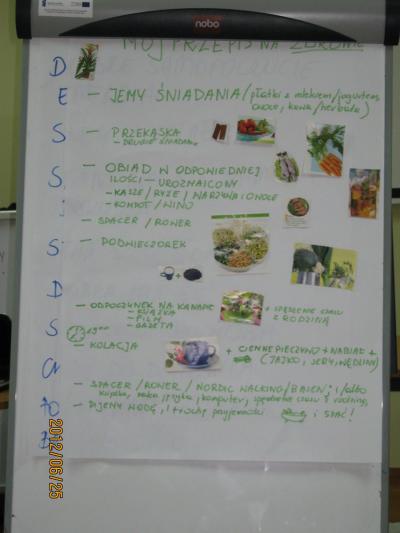 nobo
MÓJ PRZEPIS NA ZDROWIE
D
E
S
S
S
I
S
S
D
S
- JEMY ŚNIADANIA / płatki z mlekiem/jogurtem,
owoce, kawa/herbata)
- PRZEKĄSKA
- DRUGIE ŚNIADANIE
- OBIAD W ODPOWIEDNIEJ
ILOŚCI - UROZMAICONY
- KASZE / RYŻE / WARZYWA I OWOCE
- KOMPOT / WINO
- SPACER / ROWER
- PODWIECZOREK
+
- ODPOCZYNEK NA KANAPIE
- KSIĄŻKA
- FILM
- GAZETA
+ SPĘDZENIE CZASU
Z RODZINĄ
- KOLACJA
+ CIEMNE PIECZYWO + NABIAŁ +
(JAJKO, SERY, WĘDLINY)
- SPACER / ROWER / NORDIC WALKING / BASEN; i/albo
książka, nauka języka, komputer, spędzenie czasu z rodziną,
- PIJEMY WODĘ, ! + trochę przyjemności i SPAĆ!
2012/06/25